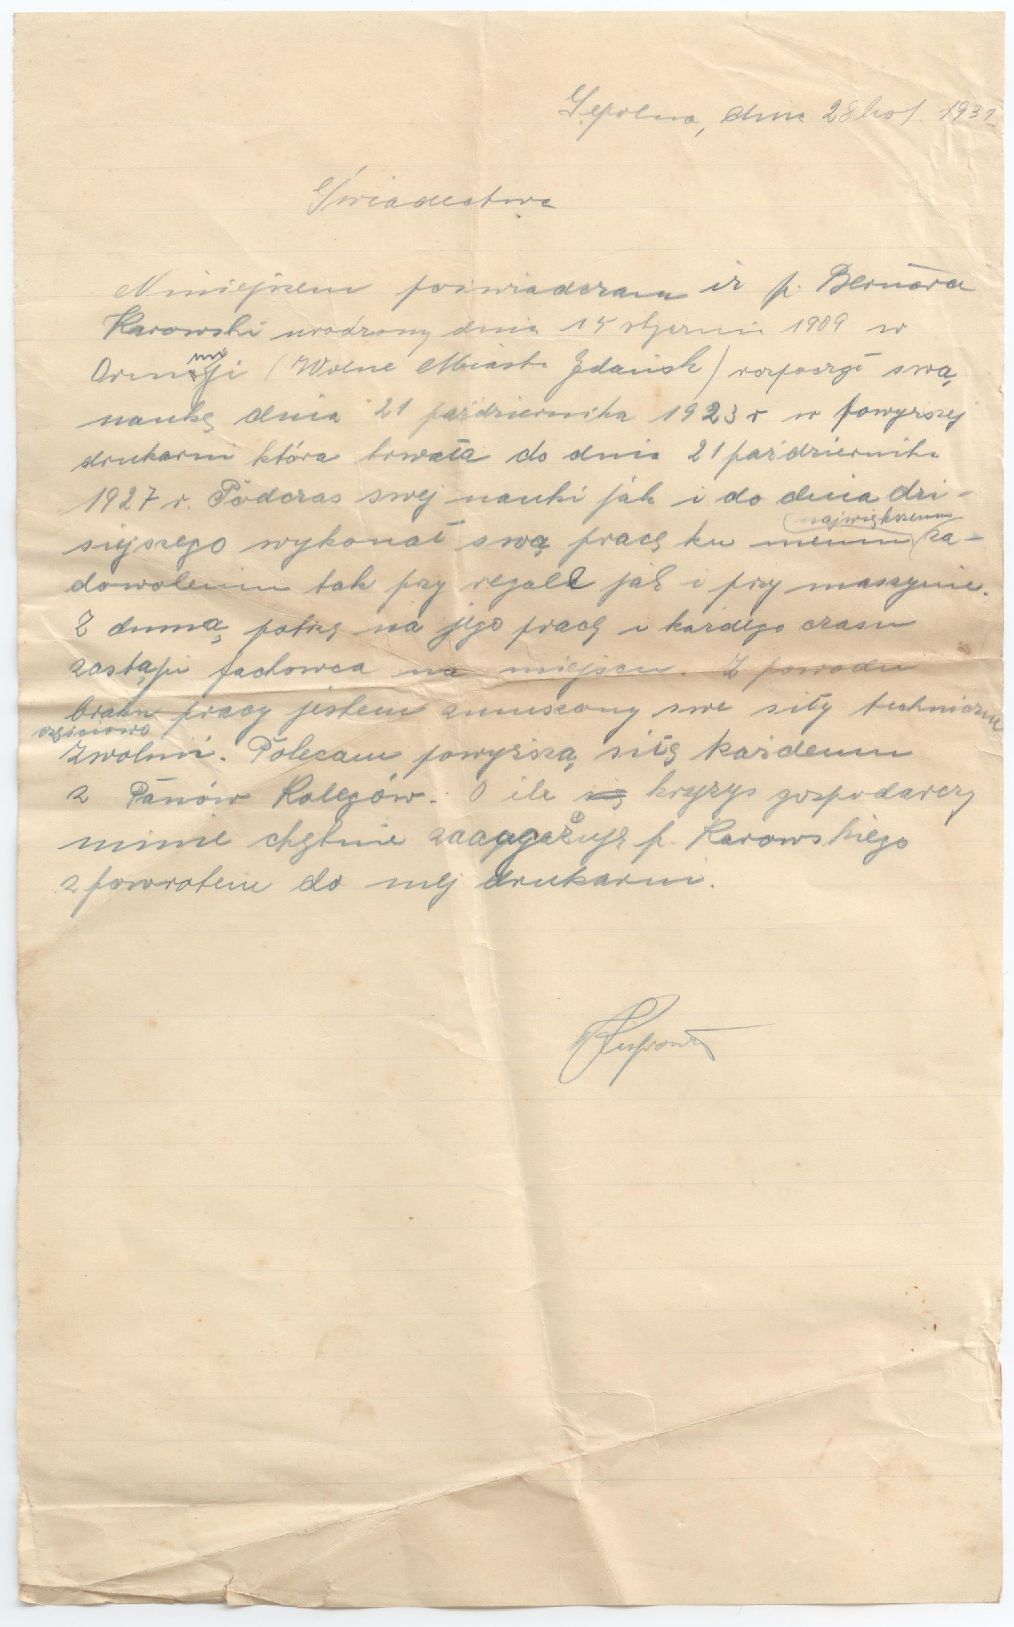 Sępolno, dnia 28 1931
Świadectwo
Niniejszem poświadczam iż p. Bernard
Karowski urodzony dnia 15 stycznia 1909 w
(Wolne Miasto Gdańsk) rozpoczął swą
naukę dnia 21 października 1923 r w powyższej
drukarni która trwała do dnia 21 październik
1927 r. Podczas swej nauki jak i do dnia dzi-
siejszego wykonał swą pracę ku memu (największemu) za-
dowoleniu tak przy regale jak i przy maszynie.
Z dumą patrzę na jego pracę i każdego czasu
zastąpi fachowca na miejscu. Z powodu
braku pracy jestem zmuszony swe siły techniczne
częściowo
zwolnić. Polecam powyższą siłę każdemu
z Panów Kolegów. O ile kryzys gospodarczy
minie chętnie zaangażuję p. Karowskiego
z powrotem do mej drukarni.